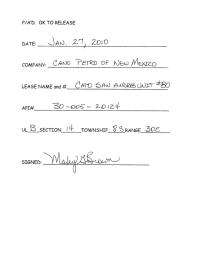 P/A'D. OK TO RELEASE
DATE: JAN. 27, 2010
COMPANY: CANO PETRO OF NEW MEXICO
LEASE NAME and #. CATO SAN ANDRES UNIT #80
API# 30-005-20124
UL B SECTION 14 TOWNSHIP 8S RANGE 30E
SIGNED: Maley G Brown